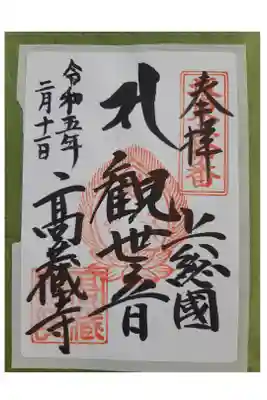 奉拝
上総國
札
観世音
令和五年
二月十一日
高藏寺